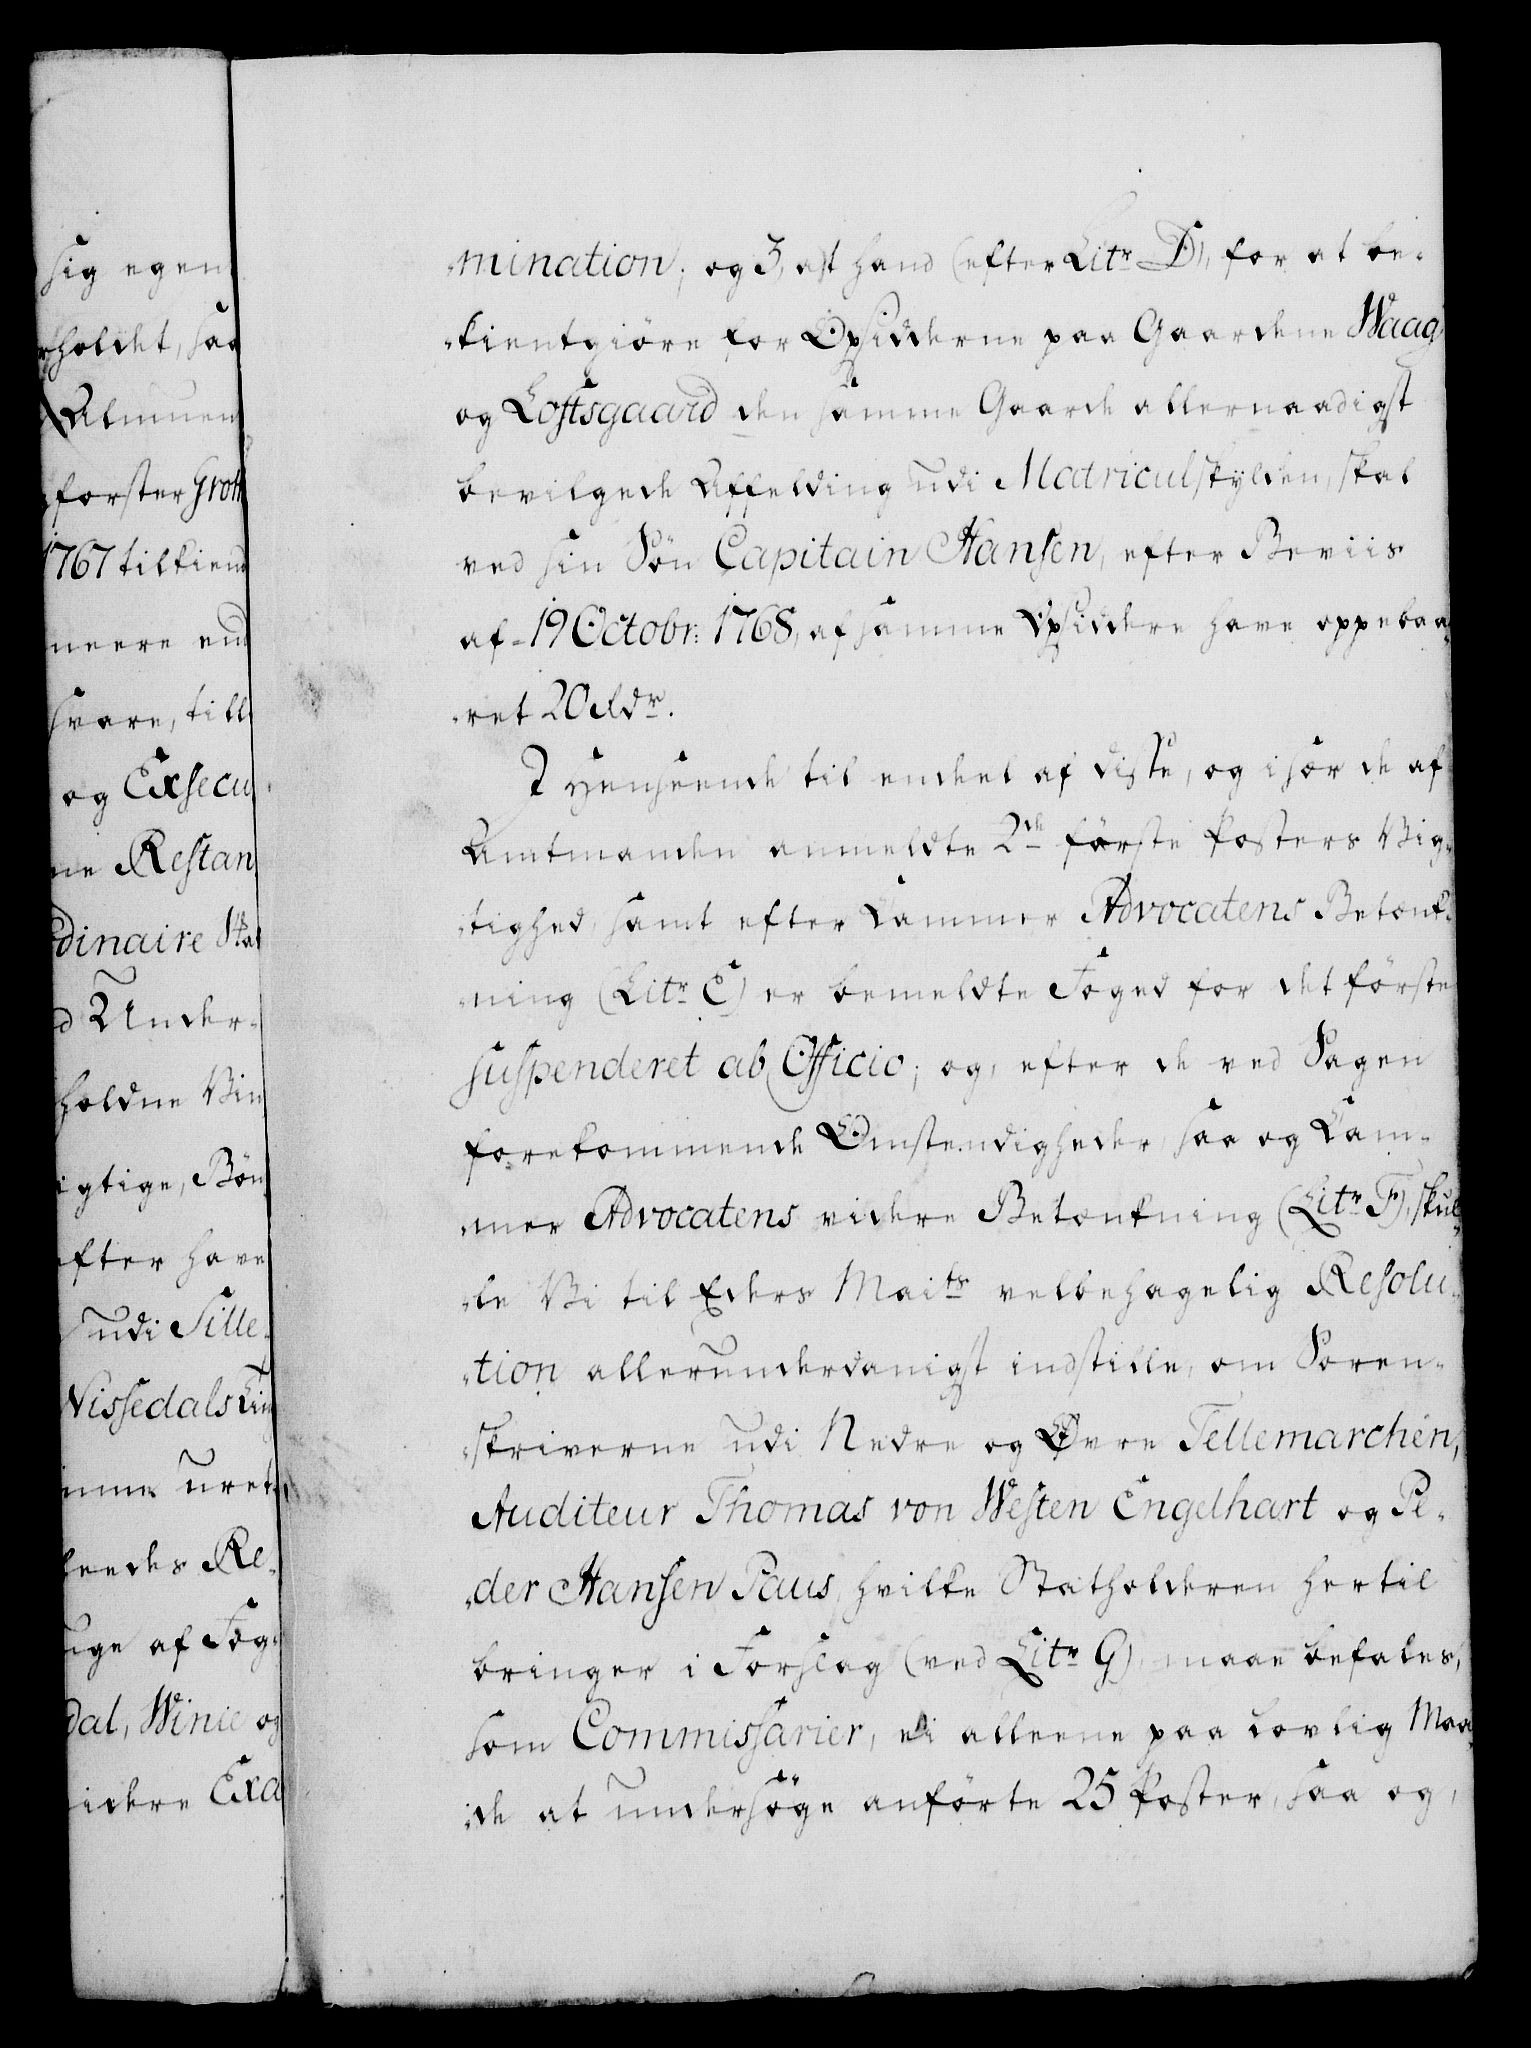 sig egen
holdet, saa
Almuen
forster Grott
1767 tilkiend
meere end
svare, till
og Exsecu
ne Restan
dinaire Ska
d Under-
holdne Vin
igtige, Bön
efter have
udi Sille-
Nissedals Tin
mme uret-
heedes Re-
uge af Fog-
dal, Winie og
idere Exa
-mination; og 3, at hand (efter Litr D), for at be-
-kientgiöre for Opsidderne paa Gaardene Waag
og Loftsgaard den samme Gaarde allernaadigst
bevilgede Affelding udi Matriculskylden, skal
ved sin Sön Capitain Hansen, efter Beviis
af 19 Octobr: 1768, af samme Opsiddere have oppebaa-
-ret 20 Rdr.
I Henseende til endeel af disse, og i sær de af
Amtmanden anmeldte 2de förste Posters Vig-
-tighed, samt efter Cammer Advocatens Betænk-
-ning (Litr E) er bemeldte Foged for det förste
suspenderet ab Officio; og, efter de ved Sagen
forekommende Omstendigheder, saa og Cam-
-mer Advocatens videre Betænkning (Litr F), skul-
-le Vi til Eders Maits velbehagelig Resolu-
-tion allerunderdanigst indstille, om Soren-
-skriverne udi Nedre og Øvre Tellemarchen,
Auditeur Thomas von Westen Engelhart og Pe-
-der Hansen Paus, hvilke Statholderen hertil
bringer i Forslag (ved Litr G), maae befales,
som Commissarier, ei alleene paa lovlig Maa-
-de at undersöge anförte 25 Poster, saa og,